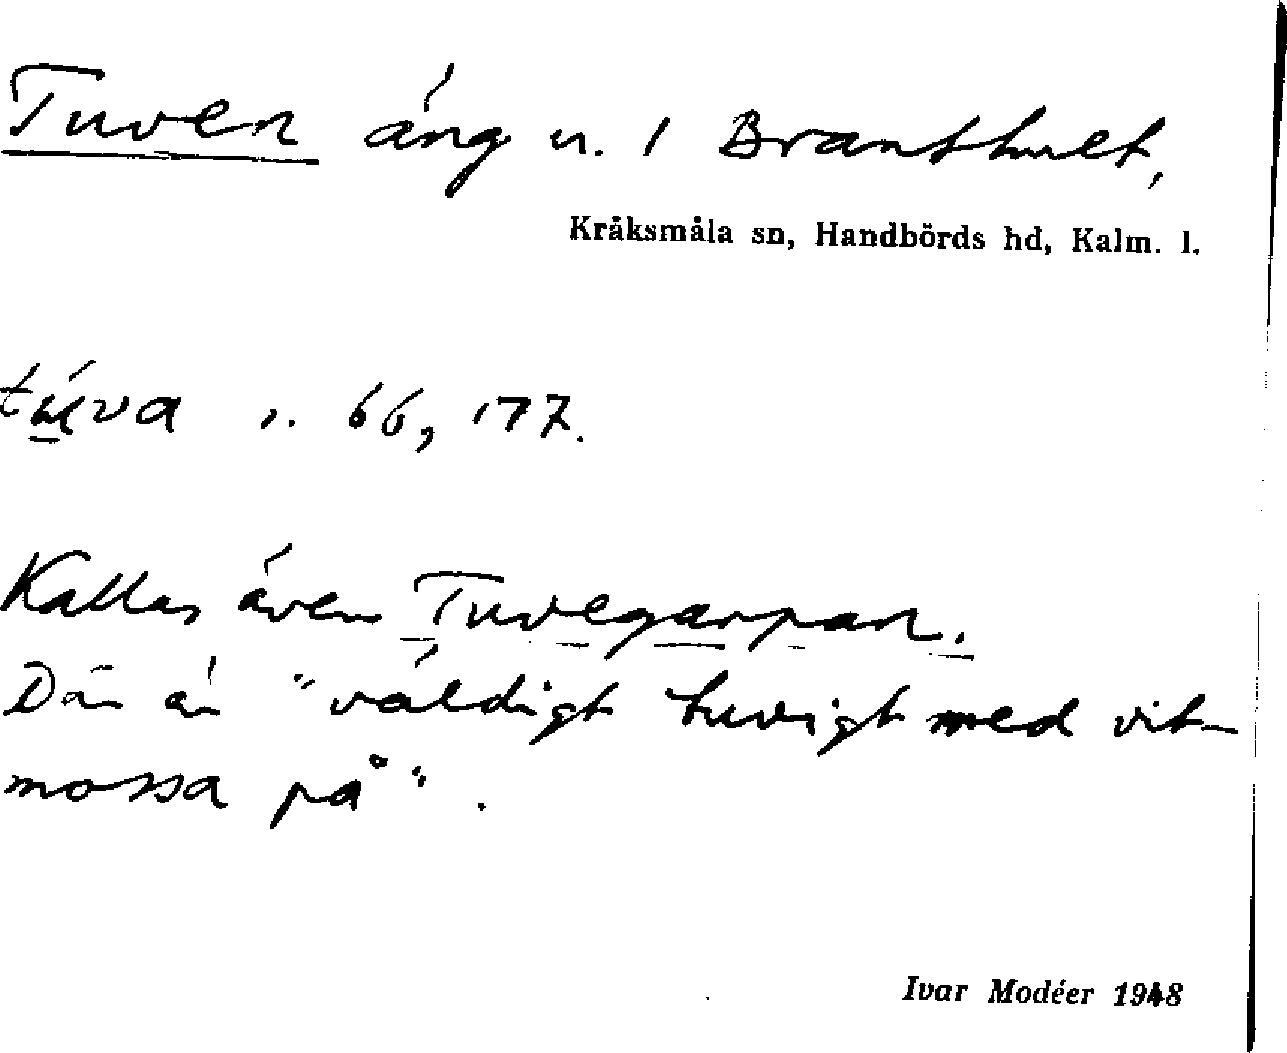 Tuven äng u. 1 Branthult,
Kråksmåla sn, Handbörds hd, Kalm. l.
túva s. 66, 177.
Kallas även Tuvegarpan.
Där är "väldigt tuvigt med vit-
mossa på".
Ivar Modéer 1948